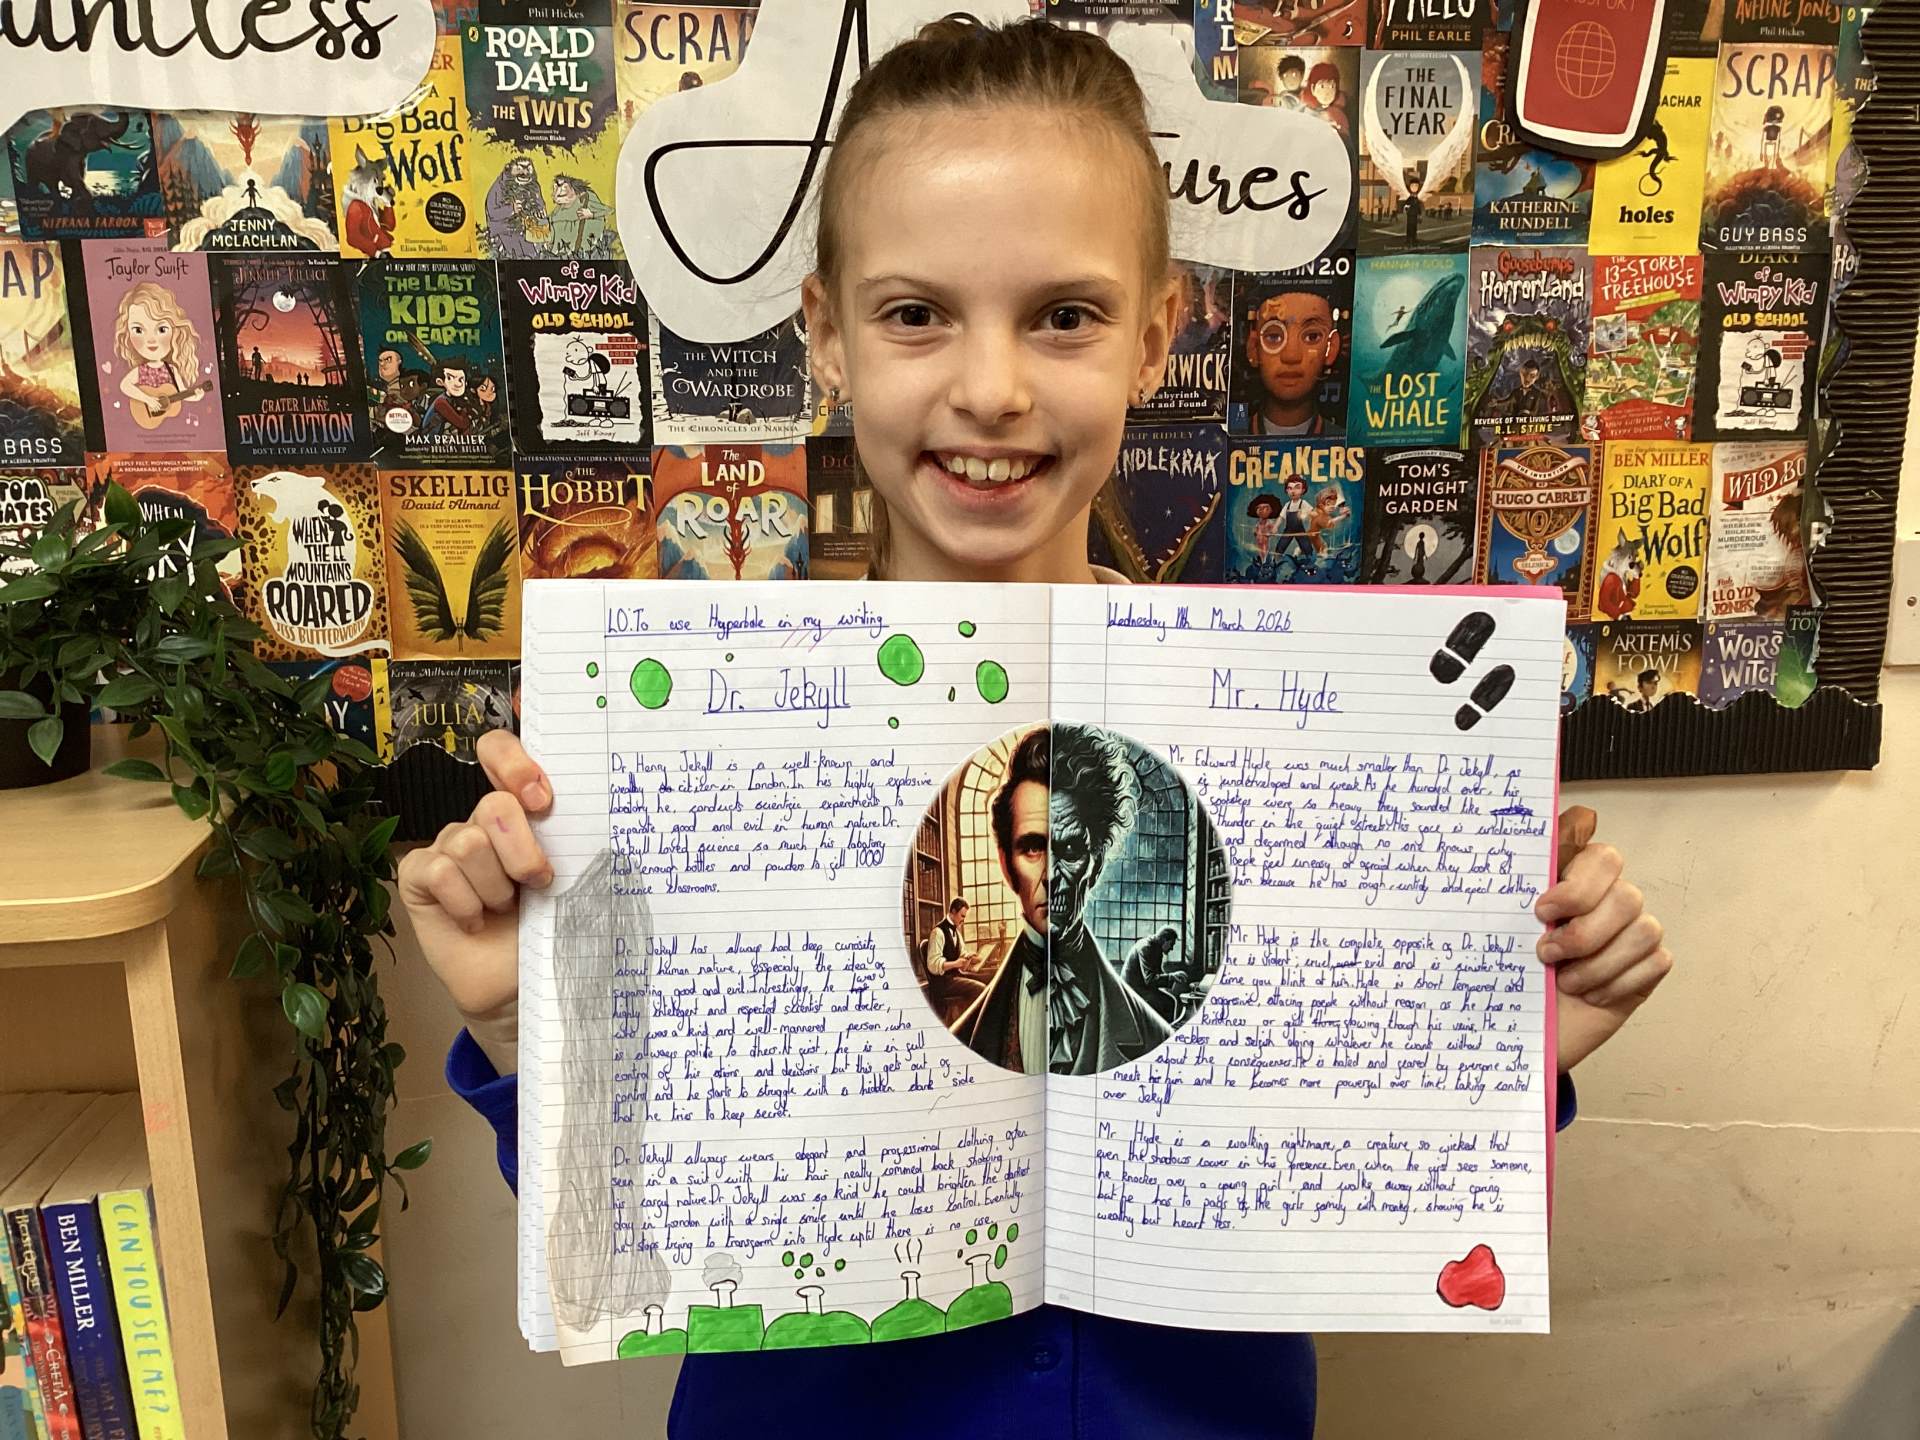 untless
A
tures
PASSPORT
Phil Hickes
ROALD
DAHL
THE TWITS
Illustrated by
Quentin Blake
SCRAP
PHIL EARLE
THE
FINAL
YEAR
AVELINE JONES
Phil Hickes
SCRAP
GUY BASS
Big Bad
Wolf
NIZRANA FAROOK
JENNY
MCLACHLAN
KATHERINE
RUNDELL
SACHAR
holes
AP
BASS
Taylor Swift
CRATER LAKE
EVOLUTION
DON'T EVER FALL ASLEEP
THE LAST
KIDS
ON EARTH
MAX BRALLIER
of a
Wimpy Kid
OLD SCHOOL
Jeff Kinney
THE WITCH
AND THE
WARDROBE
THE CHRONICLES OF NARNIA
RWICK
2.0
HANNAH GOLD
THE
LOST
WHALE
Goosebumps
HORRORLAND
REVENGE OF THE LIVING MUMMY
R.L. STINE
13-STOREY
TREEHOUSE
DIARY
of a
Wimpy Kid
OLD SCHOOL
TOM
GATES
WHEN
SKY
WHEN
THE
MOUNTAINS
ROARED
JESS BUTTERWORTH
SKELLIG
David Almond
INTERNATIONAL CHILDREN'S BESTSELLER
THE
HOBBIT
The
LAND
of
ROAR
PHILIP RIDLEY
NDLEKRAX
THE
CREAKERS
TOM'S
MIDNIGHT
GARDEN
THE INVENTION OF
HUGO CABRET
BEN MILLER
DIARY OF A
Big Bad
Wolf
WANTED
WILD BO
LLOYD
JONES
Kiran Millwood Hargrave
JULIA
ARTEMIS
FOWL
WORS
WITCH
TOM
BEN MILLER
CRETA
CAN YOU SEE ME?
LO: To use Hyperbole in my writing
Dr. Jekyll
Dr Henry Jekyll is a well-known and
wealthy citizen in London. In his highly explosive
labatory he, conducts scientific experiments to
separate good and evil in human nature. Dr.
Jekyll loved science so much his labatory
had enough bottles and powders to fill 1000
science classrooms.
Dr Jekyll has always had deep curiosity
about human nature, especialy the idea of
separating good and evil. Intrestingly, he was a
highly intelegent and respected scientist and docter,
who was a kind and well-mannered person, who
is always polite to others. At first, he is in full
control of his and decisions but this gets out of
control and he starts to struggle with a hidden dark side
that he tries to keep secret.
Dr Jekyll always wears elegant and professional clothing often
seen in a suit with his hair neatly commed back, showing
his carful nature. Dr Jekyll was so kind he could brighten the darkest
day in London with a single smile until he loses control. Eventuly,
he stops trying to transform into Hyde until there is no use.
Wednesday 11th March 2026
Mr. Hyde
Mr Edward Hyde was much smaller than Dr Jekyll, as
is underveloped and weak. As he hunched over, his
footsteps were so heavy they sounded like
thunder in the quiet streets. His face is undescribed
and deformed although no one knows why.
People feel uneasy or afraid when they look at
him because he has rough, untidy and clothing.
Mr Hyde is the complete opposite of Dr. Jekyll -
he is violent, cruel, evil and is sinister every
time you blink at him. Hyde is short tempered and
aggresive, attacing people without reason as he has no
kindness or guilt flowing though his veins. He is
reckless and selfish doing whatever he wants without caring
about the consequenses. He is hated and feared by everyone who
meets him and he becomes more powerful over time, taking control
over Jekyll
Mr Hyde is a walking nightmare, a creature so wicked that
even the shadows cower in his presence. Even when he first sees someone,
he knockes over a young girl and walks away without caring
but he has to pay the girls family with money, showing he is
wealthy but heart less.